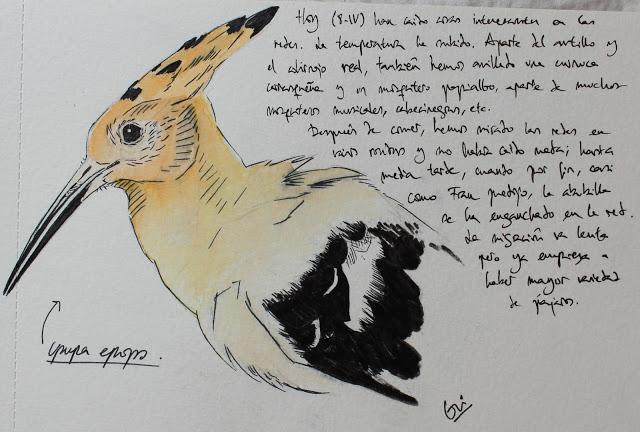 Hoy (8-IV) han caido cosas interesantes en las
redes. La temperatura ha subido. Aparte del autillo y
el alirrojo real, también hemos anillado una curruca
carrasqueña y un mosquitero papialbo, aparte de muchos
mosquiteros musicales, cabecinegras, etc.
Después de comer, hemos mirado las redes en
varias y no había caido nada; hasta
media tarde, cuando por fin, casi
como Fran predijo, la abubilla
se ha enganchado en la red.
La migración va lenta
pero ya empieza a
haber mayor variedad
de pájaros.
Upupa epops.